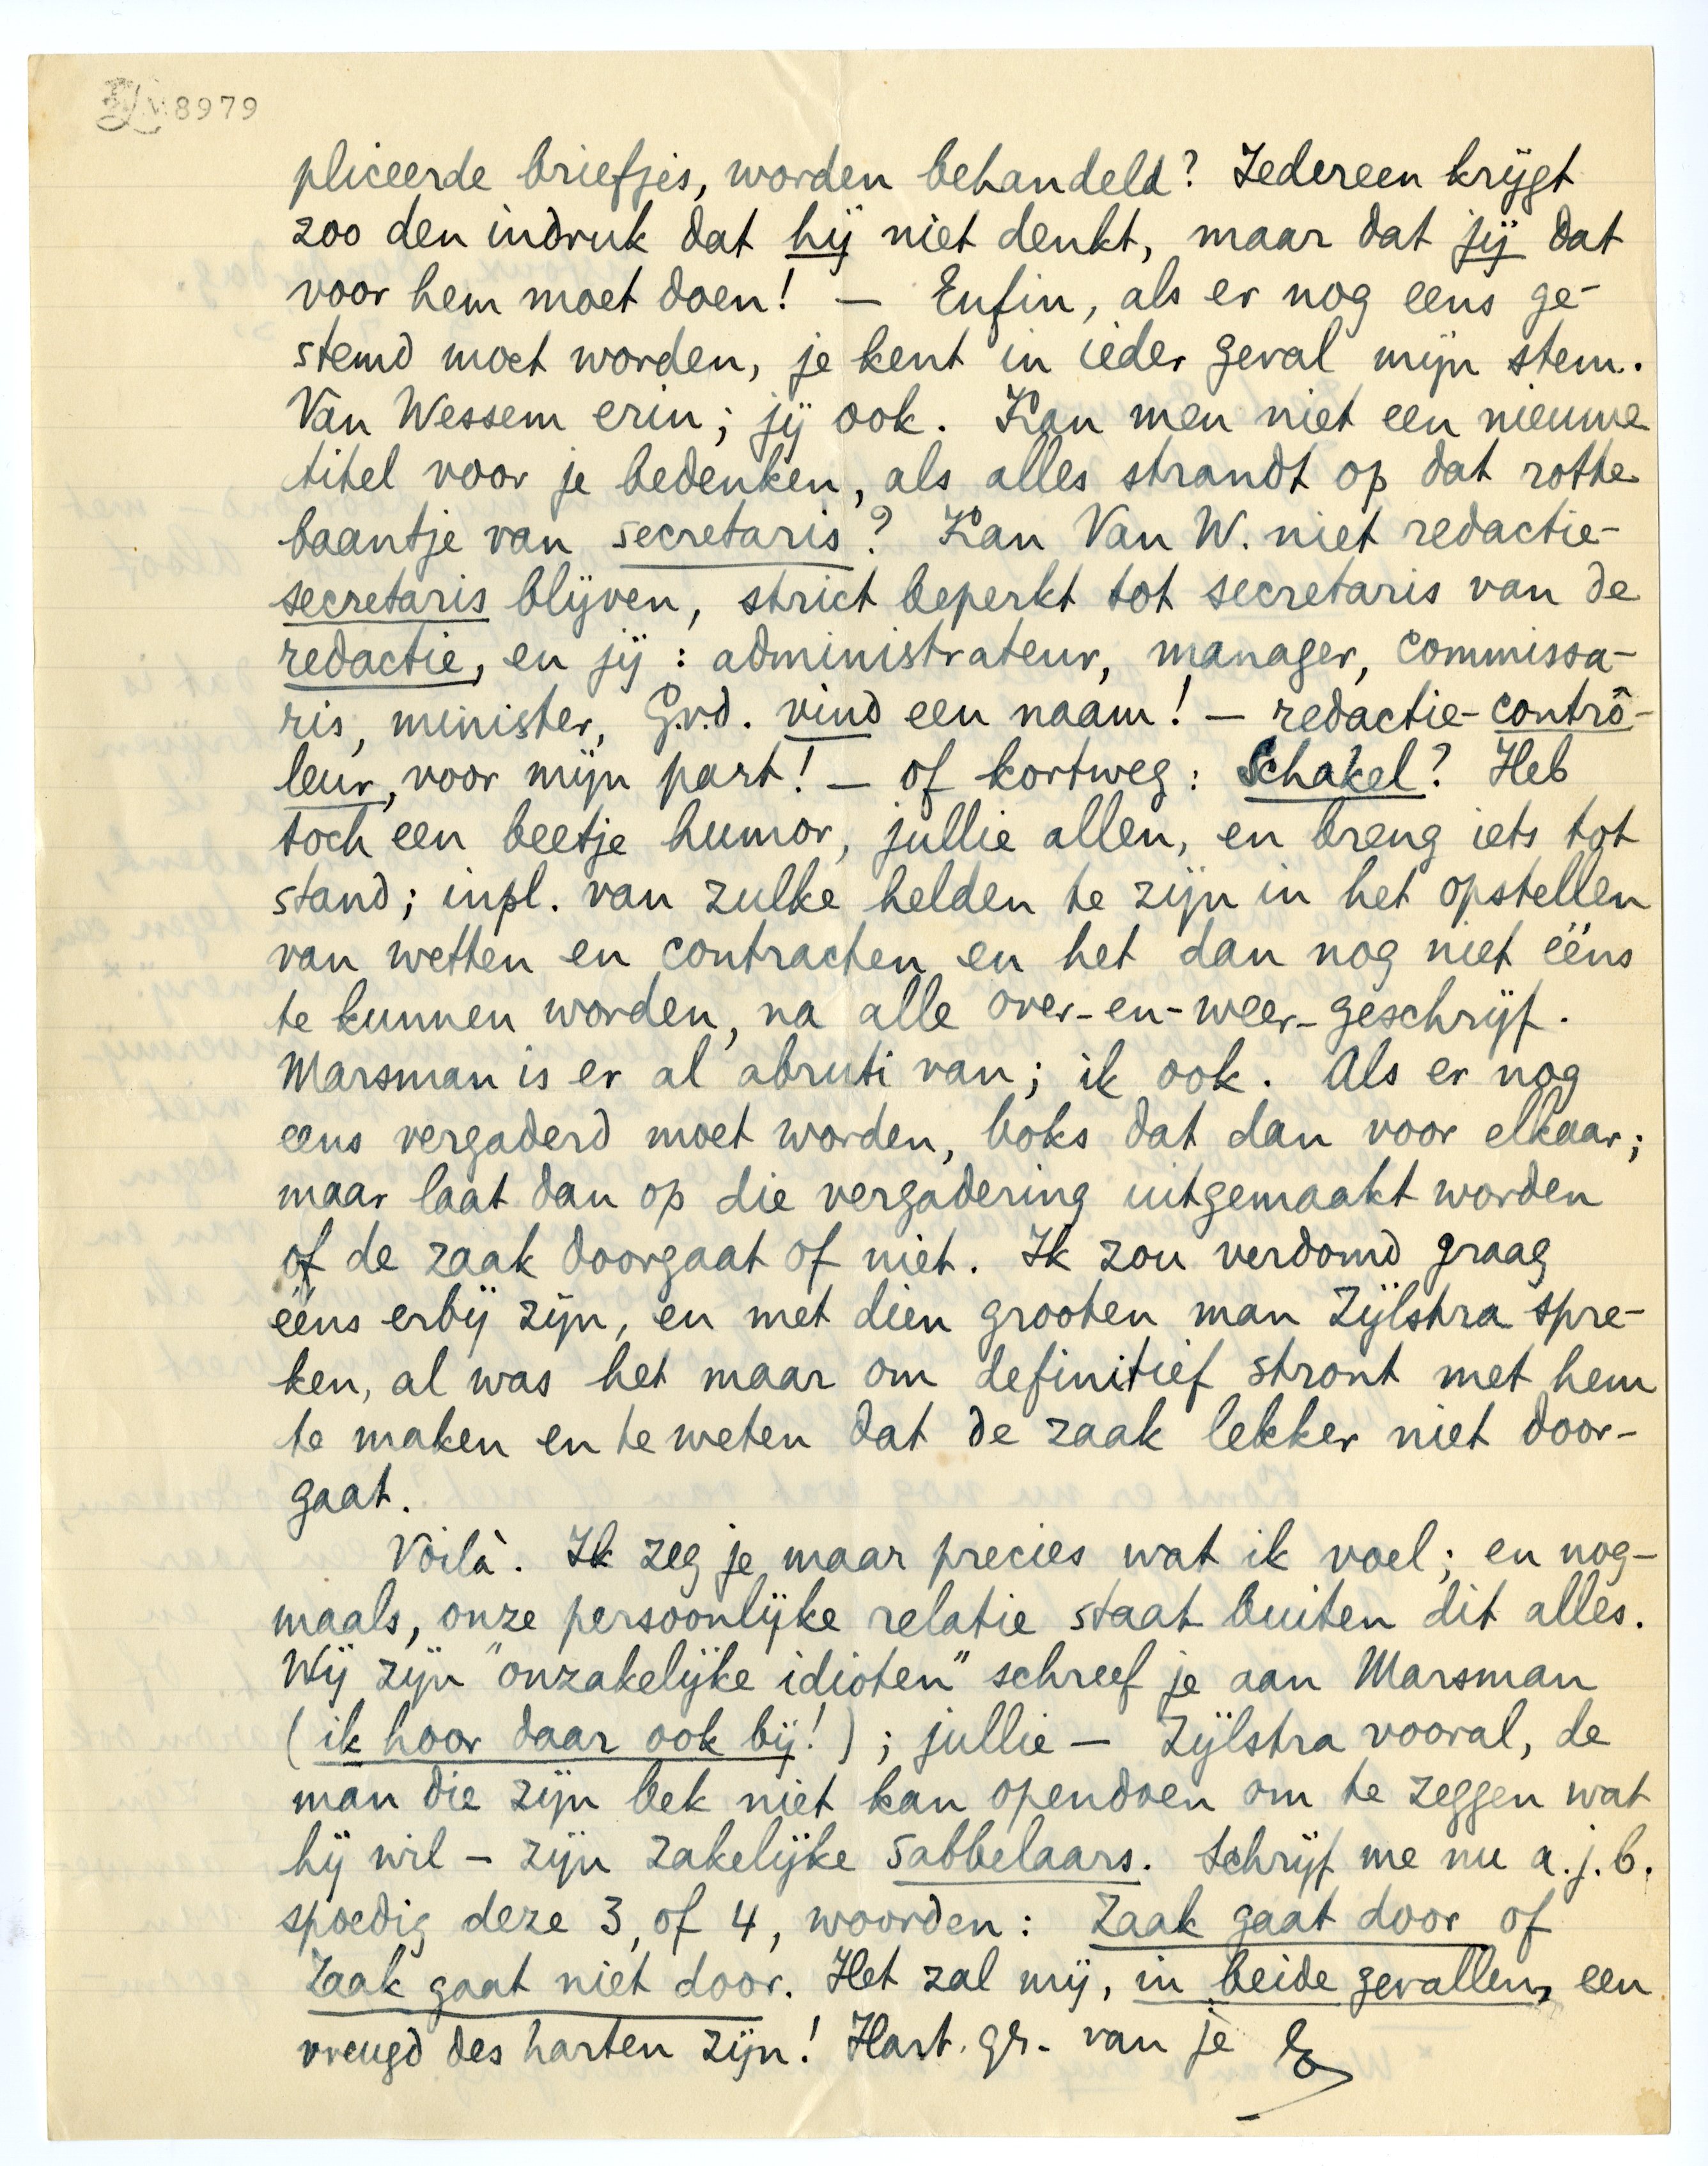 8979
pliceerde briefjes, worden behandeld? Iedereen krijgt
zoo den indruk dat hij niet denkt, maar dat jij dat
voor hem moet doen! — Enfin, als er nog eens ge-
stemd moet worden, je kent in ieder geval mijn stem.
Van Wessem erin; jij ook. Kan men niet een nieuwe
titel voor je bedenken, als alles strandt op dat rotte
baantje van secretaris? Kan Van W. niet redactie-
secretaris blijven, strict beperkt tot secretaris van de
redactie, en jij: administrateur, manager, commissa-
ris, minister, G.v.d. vind een naam! — redactie-contrô-
leur, voor mijn part! — of kortweg: Schakel? Heb
toch een beetje humor, jullie allen, en breng iets tot
stand; inpl. van zulke helden te zijn in het opstellen
van wetten en contracten en het dan nog niet ééns
te kunnen worden, na alle over-en-weer-geschrijf.
Marsman is er al abruti van; ik ook. Als er nog
eens vergaderd moet worden, boks dat dan voor elkaar;
maar laat dan op die vergadering uitgemaakt worden
of de zaak doorgaat of niet. Ik zou verdomd graag
ééns erbij zijn, en met dien grooten man Zijlstra spre-
ken, al was het maar om definitief stront met hem
te maken en te weten dat de zaak lekker niet door-
gaat.
Voilà. Ik zeg je maar precies wat ik voel; en nog-
maals, onze persoonlijke relatie staat buiten dit alles.
Wij zijn "onzakelijke idioten" schreef je aan Marsman
(ik hoor daar ook bij!); jullie — Zijlstra vooral, de
man die zijn bek niet kan opendoen om te zeggen wat
hij wil — zijn zakelijke sabbelaars. Schrijf me nu a.j.b.
spoedig deze 3, of 4, woorden: Zaak gaat door of
Zaak gaat niet door. Het zal mij, in beide gevallen, een
vreugd des harten zijn! Hart. gr. van je E